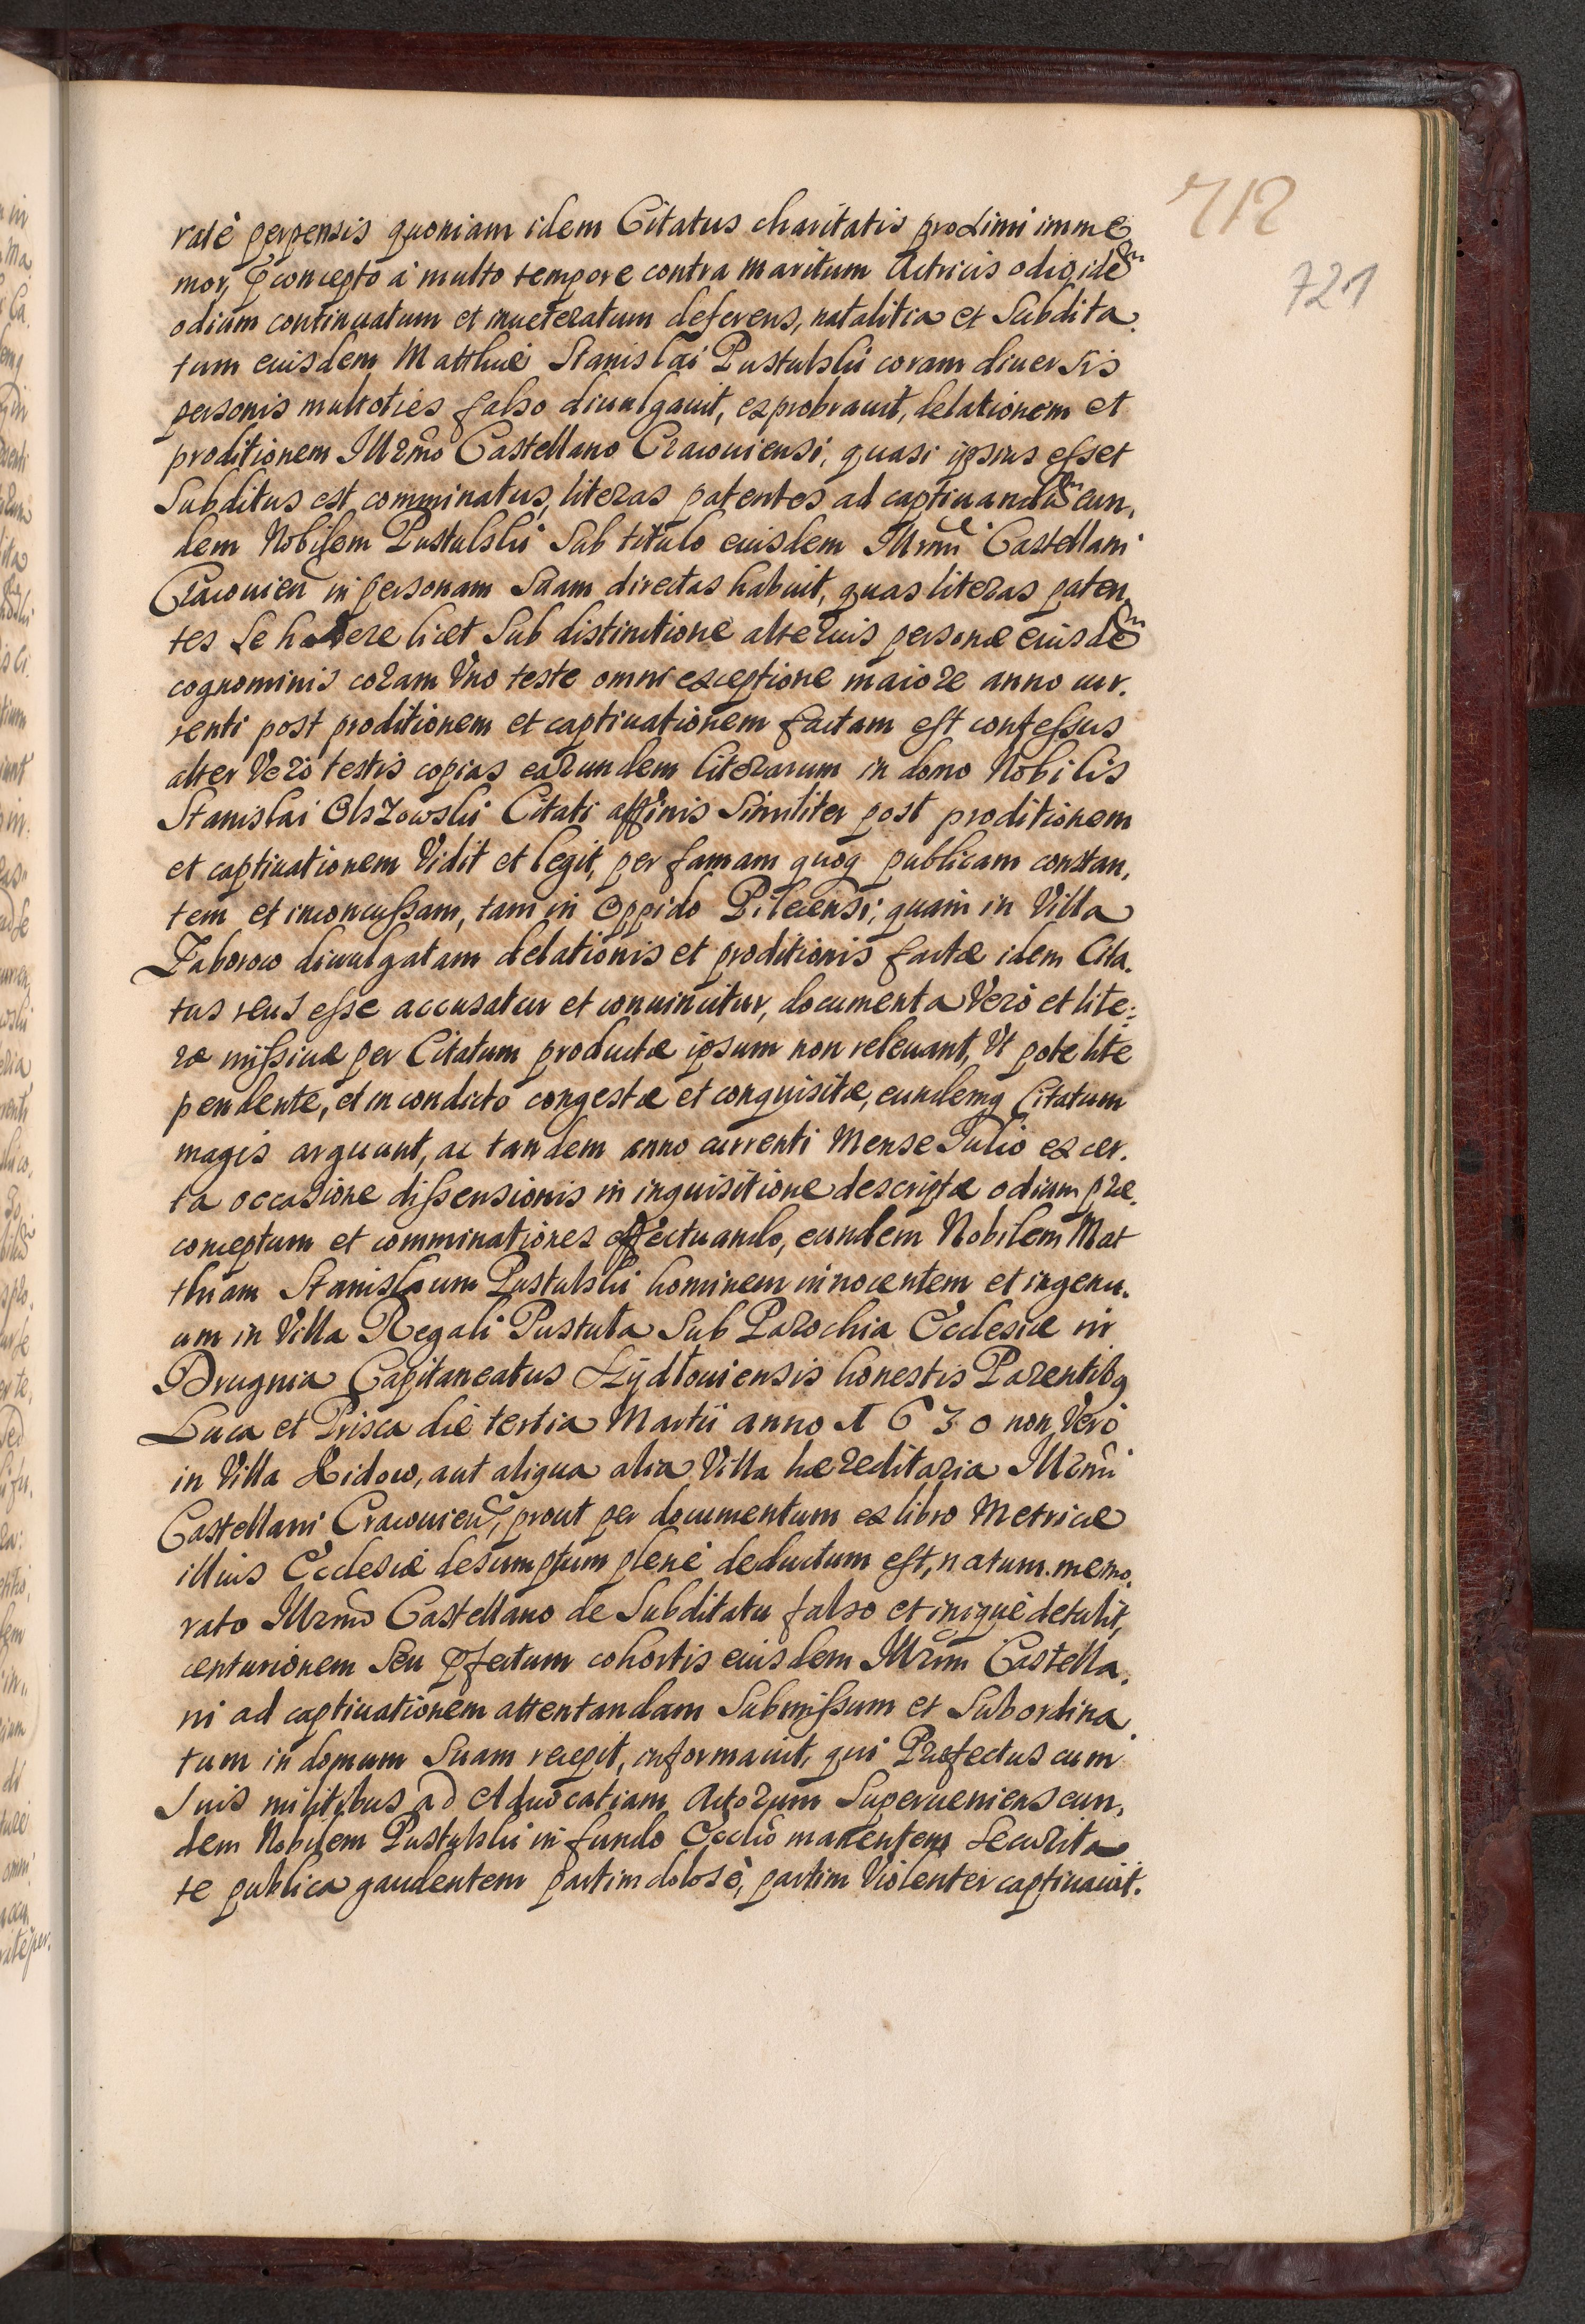 712
721
ratè perpensis quoniam idem Citatus charitatis proximi imme
mor, p̄concepto à multo tempore contra maritum Actricis odio, idem
odium continuatum et inueteratum deferens, natalitia et Subdita,
tum eiusdem Matthiæ Stanislai Pustulski coram diuersis
personis multoties falso diuulgauit, exprobrauit, delationem et
proditionem Illrmo Castellano Cracouiensi, quasi ipsius esset
Subditus est comminatus, literas patentes ad captiuandum eun,
dem Nobilem Pustulski Sub titulo eiusdem Illrmi Castellani
Cracouien in personam Suam directas habuit, quas literas paten,
tes Se habere licet Sub distinctione alterius personæ eiusdem
cognominis coram Vno teste omni exceptione maiore anno cur,
renti post proditionem et captiuationem factam est confessus
alter Verò testis copias earundem literarum in domo Nobilis
Stanislai Olszowski Citati affinis Similiter post proditionem
et captiuationem Vidit et legit, per famam quoq publicam constan,
tem et inconcussam, tam in Oppido Pilecensi, quam in Villa
Zaborow diuulgatam delationis et proditionis factæ idem Cita,
tus reus esse accusatur et conuincitur, documenta Verò et lite:
ræ missiuæ per Citatum productæ ipsum non releuant, Vt pote lite
pendente, et in condicto congestæ et conquisitæ, eundemq Citatum
magis arguunt, ac tandem anno currenti Mense Julio ex cer,
ta occasione dissensionis in inquisitione descriptæ odium præ,
conceptum et comminationes effectuando, eundem Nobilem Mat
thiam Stanislaum Pustulski hominem innocentem et ingenu,
um in Villa Regali Pustuła Sub Parochia Ecclesiæ in
Drugnia Capitaneatus Szÿdłouiensis honestis Parentibq
Luca et Prisca die tertia Martii anno 1630 non Verò
in Villa Kidow, aut aliqua alia Villa hæreditaria Illrmi
Castellani Cracouien, prout per documentum ex libro Metricæ
illius Ecclesiæ desumptum plenè deductum est, natum. memo,
rato Illrmo Castellano de Subditatu falso et iniquè detulit,
centurionem Seu p̄fectum cohortis eiusdem Illrmi Castella,
ni ad captiuationem attentandam Submissum et Subordina
tum in domum Suam recepit, informauit, qui Præfectus cum
Suis militibus ad Aduocatiam Actorum Superueniens eun,
dem Nobilem Pustulski in fundo Ecclio manentem Securita
te publica gaudentem partim dolosè, partim Violenter captiuauit.